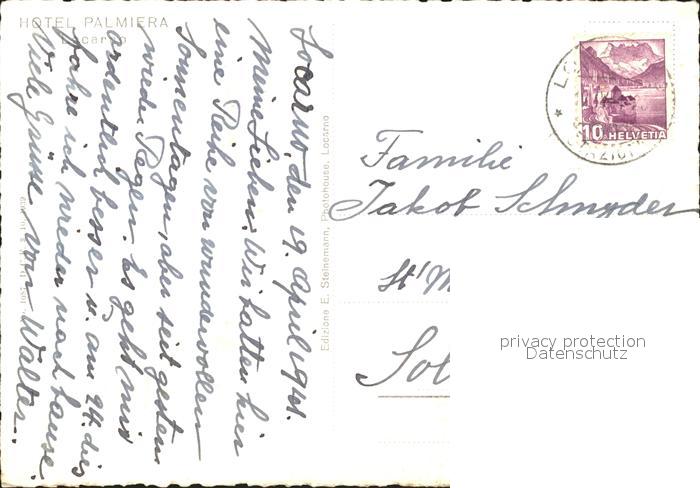 HOTEL PALMIERA
Locarno
Locarno, den 19. April 1941.
Meine Lieben, Wir hatten hier
eine Reihe von wundervollen
Sonnentagen, aber seit gestern
wieder Regen. Es geht mir
ordentlich besser u. am 24. dies
fahre ich wieder nach Hause.
Viele Grüsse von Walter.
Edizione E. Steinemann, Photohouse, Locarno
10 HELVETIA
Familie
Jakob Schnyder
St.
Sol
privacy protection
Datenschutz